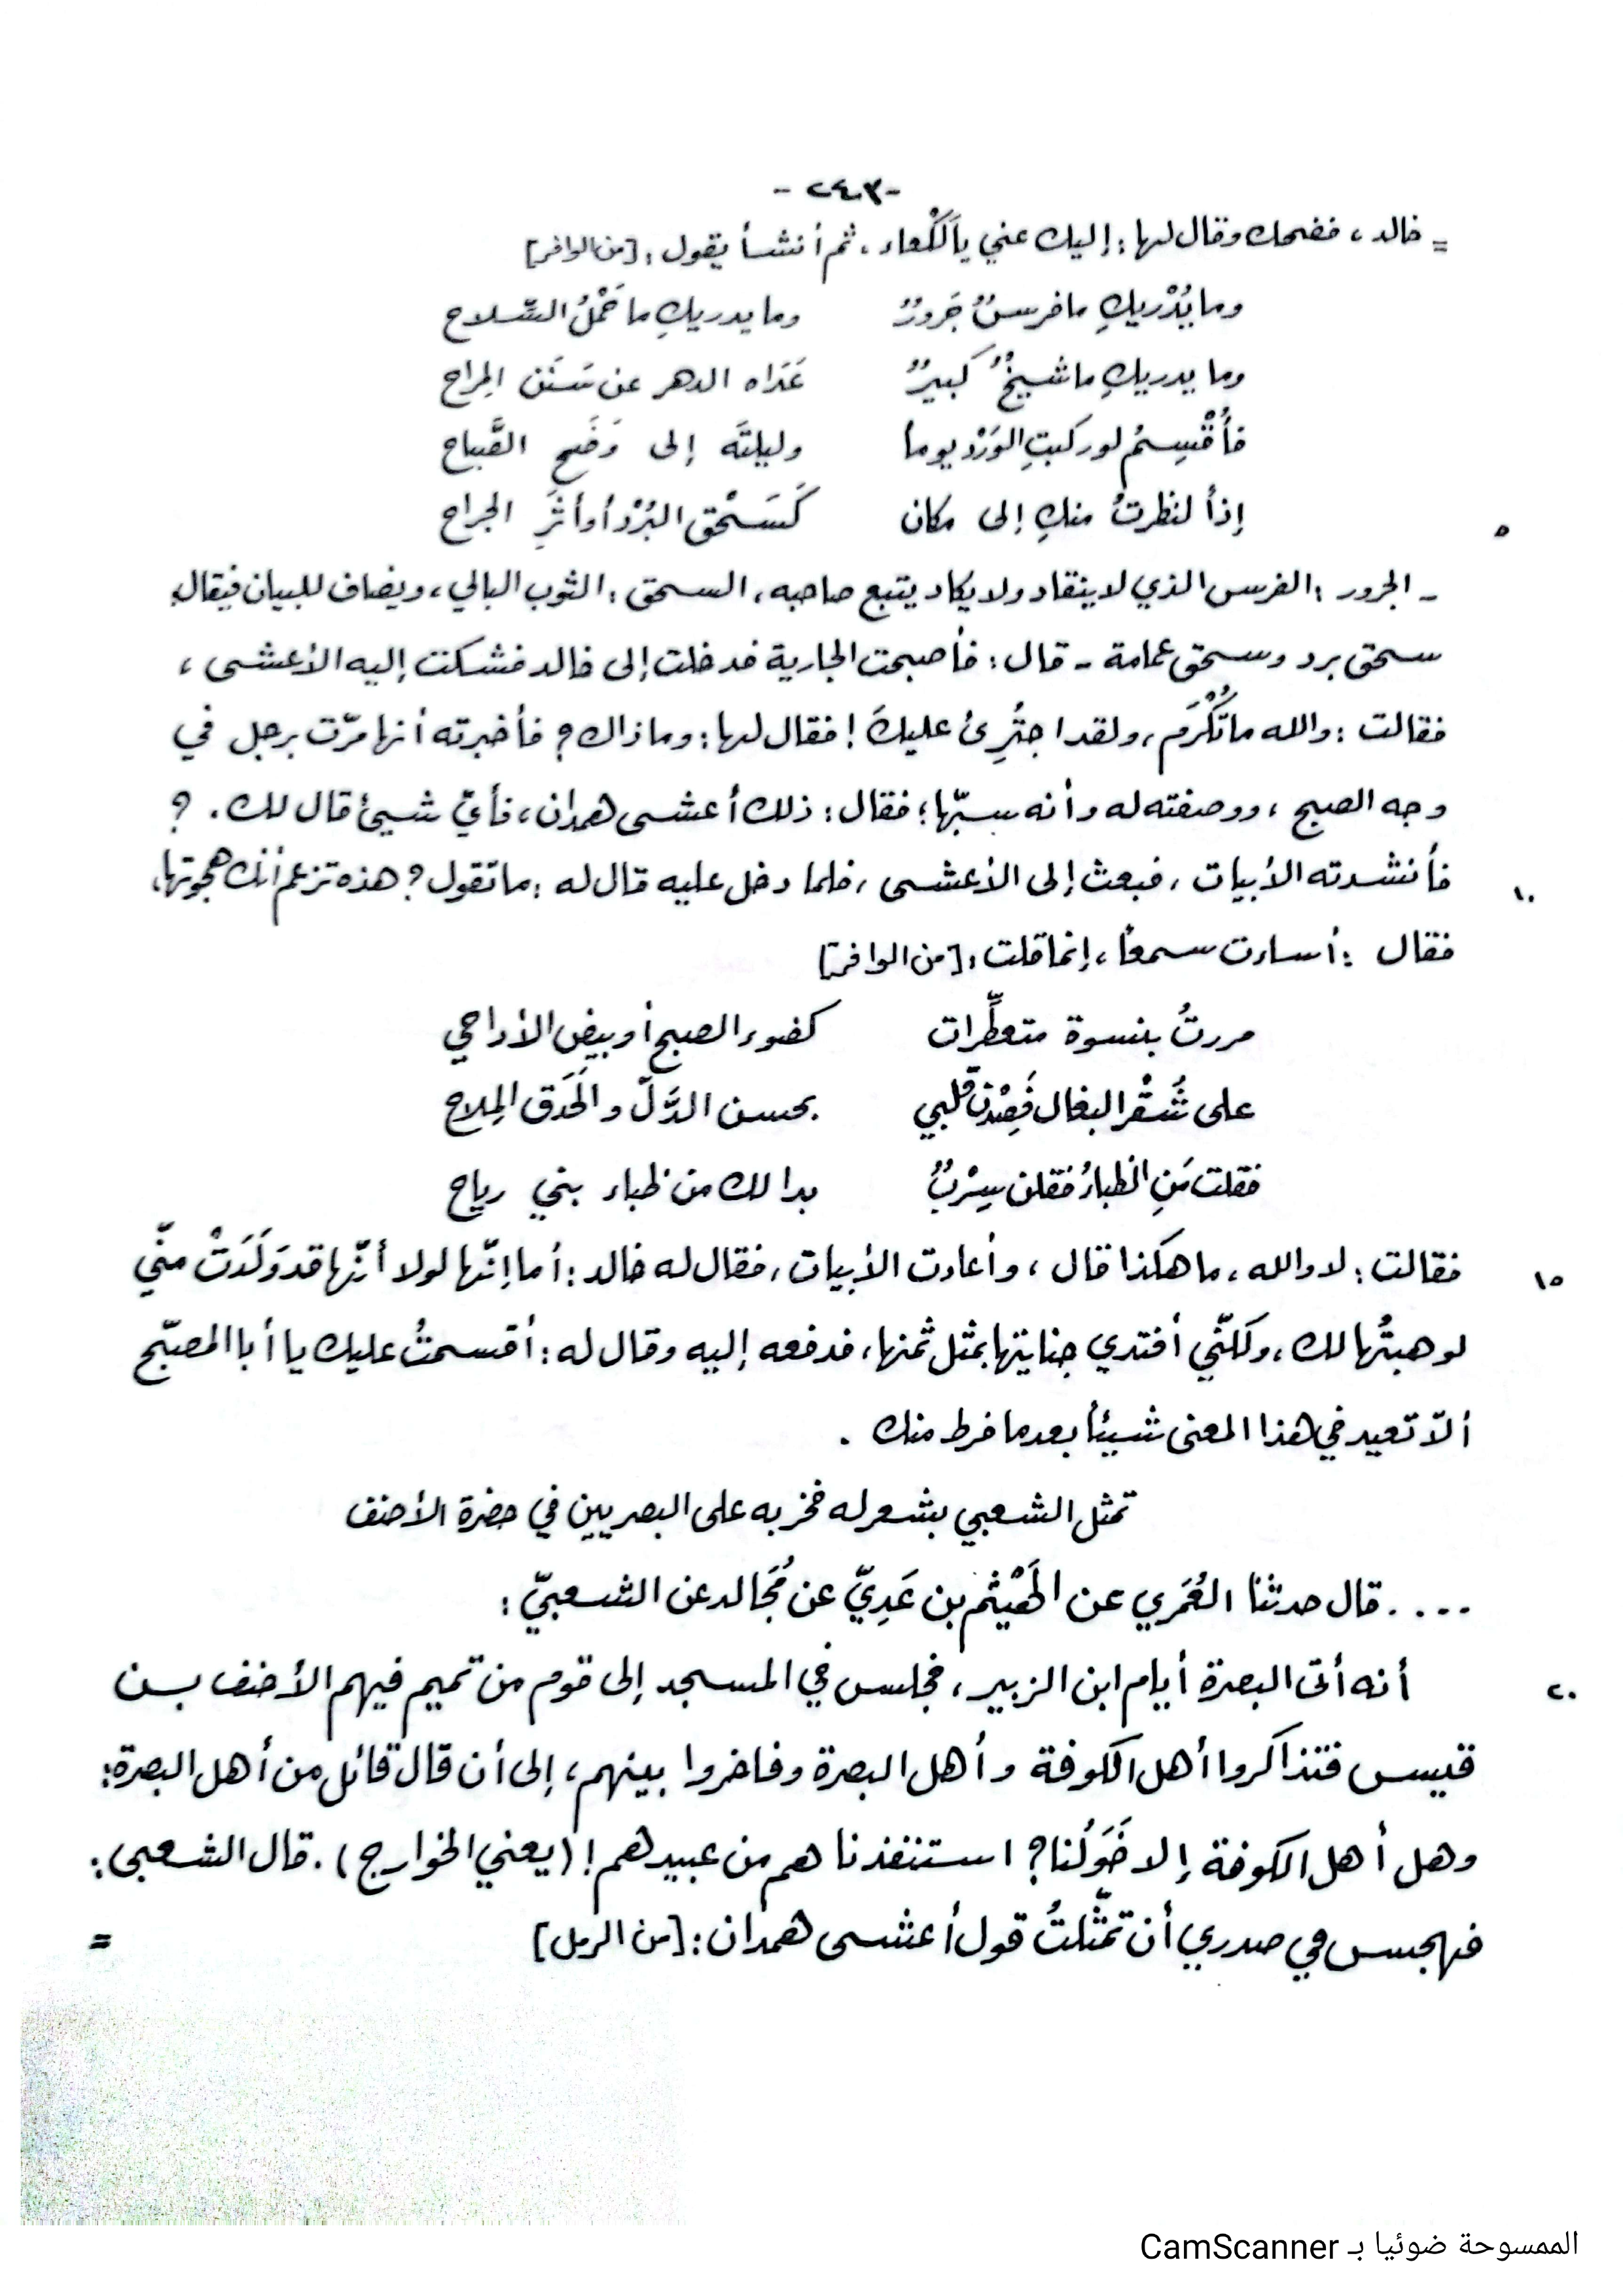 -٢٤٣-
= خالد، فضحك وقال لها: إليك عني يا لَكْعاء، ثم أنشأ يقول: [من الوافر]
وما يُدْريكِ ما فرسٌ جَرورٌ وما يدريكِ ما حَمْلُ السِّلاح
وما يدريكِ ما شيخٌ كبيرٌ عَدَاه الدهر عن سَنَن المِراح
فأُقْسِمُ لو ركبتِ الوَرْدَ يوماً وليلتَه إلى وَضَحِ الصَّباح
٥ إذاً لنظرتُ منكِ إلى مكان كَسَحْقِ البُرْدِ أو أثرِ الجراح
- الجرور: الفرس الذي لا ينقاد ولا يكاد يتبع صاحبه، السحق: الثوب البالي، ويضاف للبيان فيقال:
سحق برد وسحق عمامة - قال: فأصبحت الجارية فدخلت إلى خالد فشكت إليه الأعشى،
فقالت: والله ما تُكْرَم، ولقد اجتُرِئ عليكَ! فقال لها: وما ذاك؟ فأخبرته أنها مرّت برجل في
وجه الصبح، ووصفته له وأنه سبّها؛ فقال: ذلك أعشى همدان، فأيّ شيئ قال لك. ؟
١٠ فأنشدته الأبيات، فبعث إلى الأعشى، فلما دخل عليه قال له: ما تقول؟ هذه تزعم أنك هجوتها،
فقال: أساءت سمعاً، إنما قلت: [من الوافر]
مررتُ بنسوة متعطِّرات كضوء الصبح أو بيض الأداحي
على شُقْر البغال فَصِدْنَ قلبي بحسن الدَّلّ والحَدَق المِلاح
فقلت مَنِ الظباءُ فقلن سِرْبٌ بدا لك من ظباء بني رياح
١٥ فقالت: لا والله، ما هكذا قال، وأعادت الأبيات، فقال له خالد: أما إنّها لولا أنّها قد وَلَدَتْ منّي
لوهبتُها لك، ولكنّي أفتدي جنايتها بمثل ثمنها، فدفعه إليه وقال له: أقسمتُ عليك يا أبا المصبّح
ألاّ تعيد في هذا المعنى شيئاً بعد ما فرط منك .
تمثل الشعبي بشعر له فخر به على البصريين في حضرة الأحنف
.... قال حدثنا العُمَري عن الهَيْثم بن عَدِيّ عن مُجَالد عن الشعبيّ:
٢٠ أنه أتى البصرة أيام ابن الزبير، فجلس في المسجد إلى قوم من تميم فيهم الأحنف بن
قيس فتذاكروا أهل الكوفة وأهل البصرة وفاخروا بينهم، إلى أن قال قائل من أهل البصرة:
وهل أهل الكوفة إلا خَوَلُنا؟ استنقذناهم من عبيدهم! (يعني الخوارج). قال الشعبي:
فهجس في صدري أن تمثّلتُ قول أعشى همدان: [من الرمل] =
الممسوحة ضوئيا بـ CamScanner